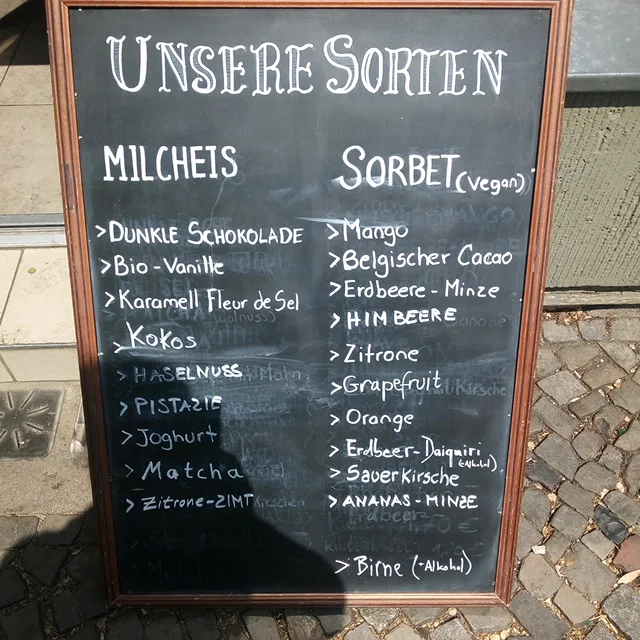 UNSERE SORTEN
MILCHEIS
> DUNKLE SCHOKOLADE
> Bio-Vanille
> Karamell Fleur de Sel
> Kokos
> HASELNUSS
> PISTAZIE
> Joghurt
> Matcha
> Zitrone-ZIMT
SORBET (vegan)
> Mango
> Belgischer Cacao
> Erdbeere - Minze
> HIMBEERE
> Zitrone
> Grapefruit
> Orange
> Erdbeer-Daiquiri
(+Alkohol)
> Sauerkirsche
> ANANAS - MINZE
> Birne (+Alkohol)